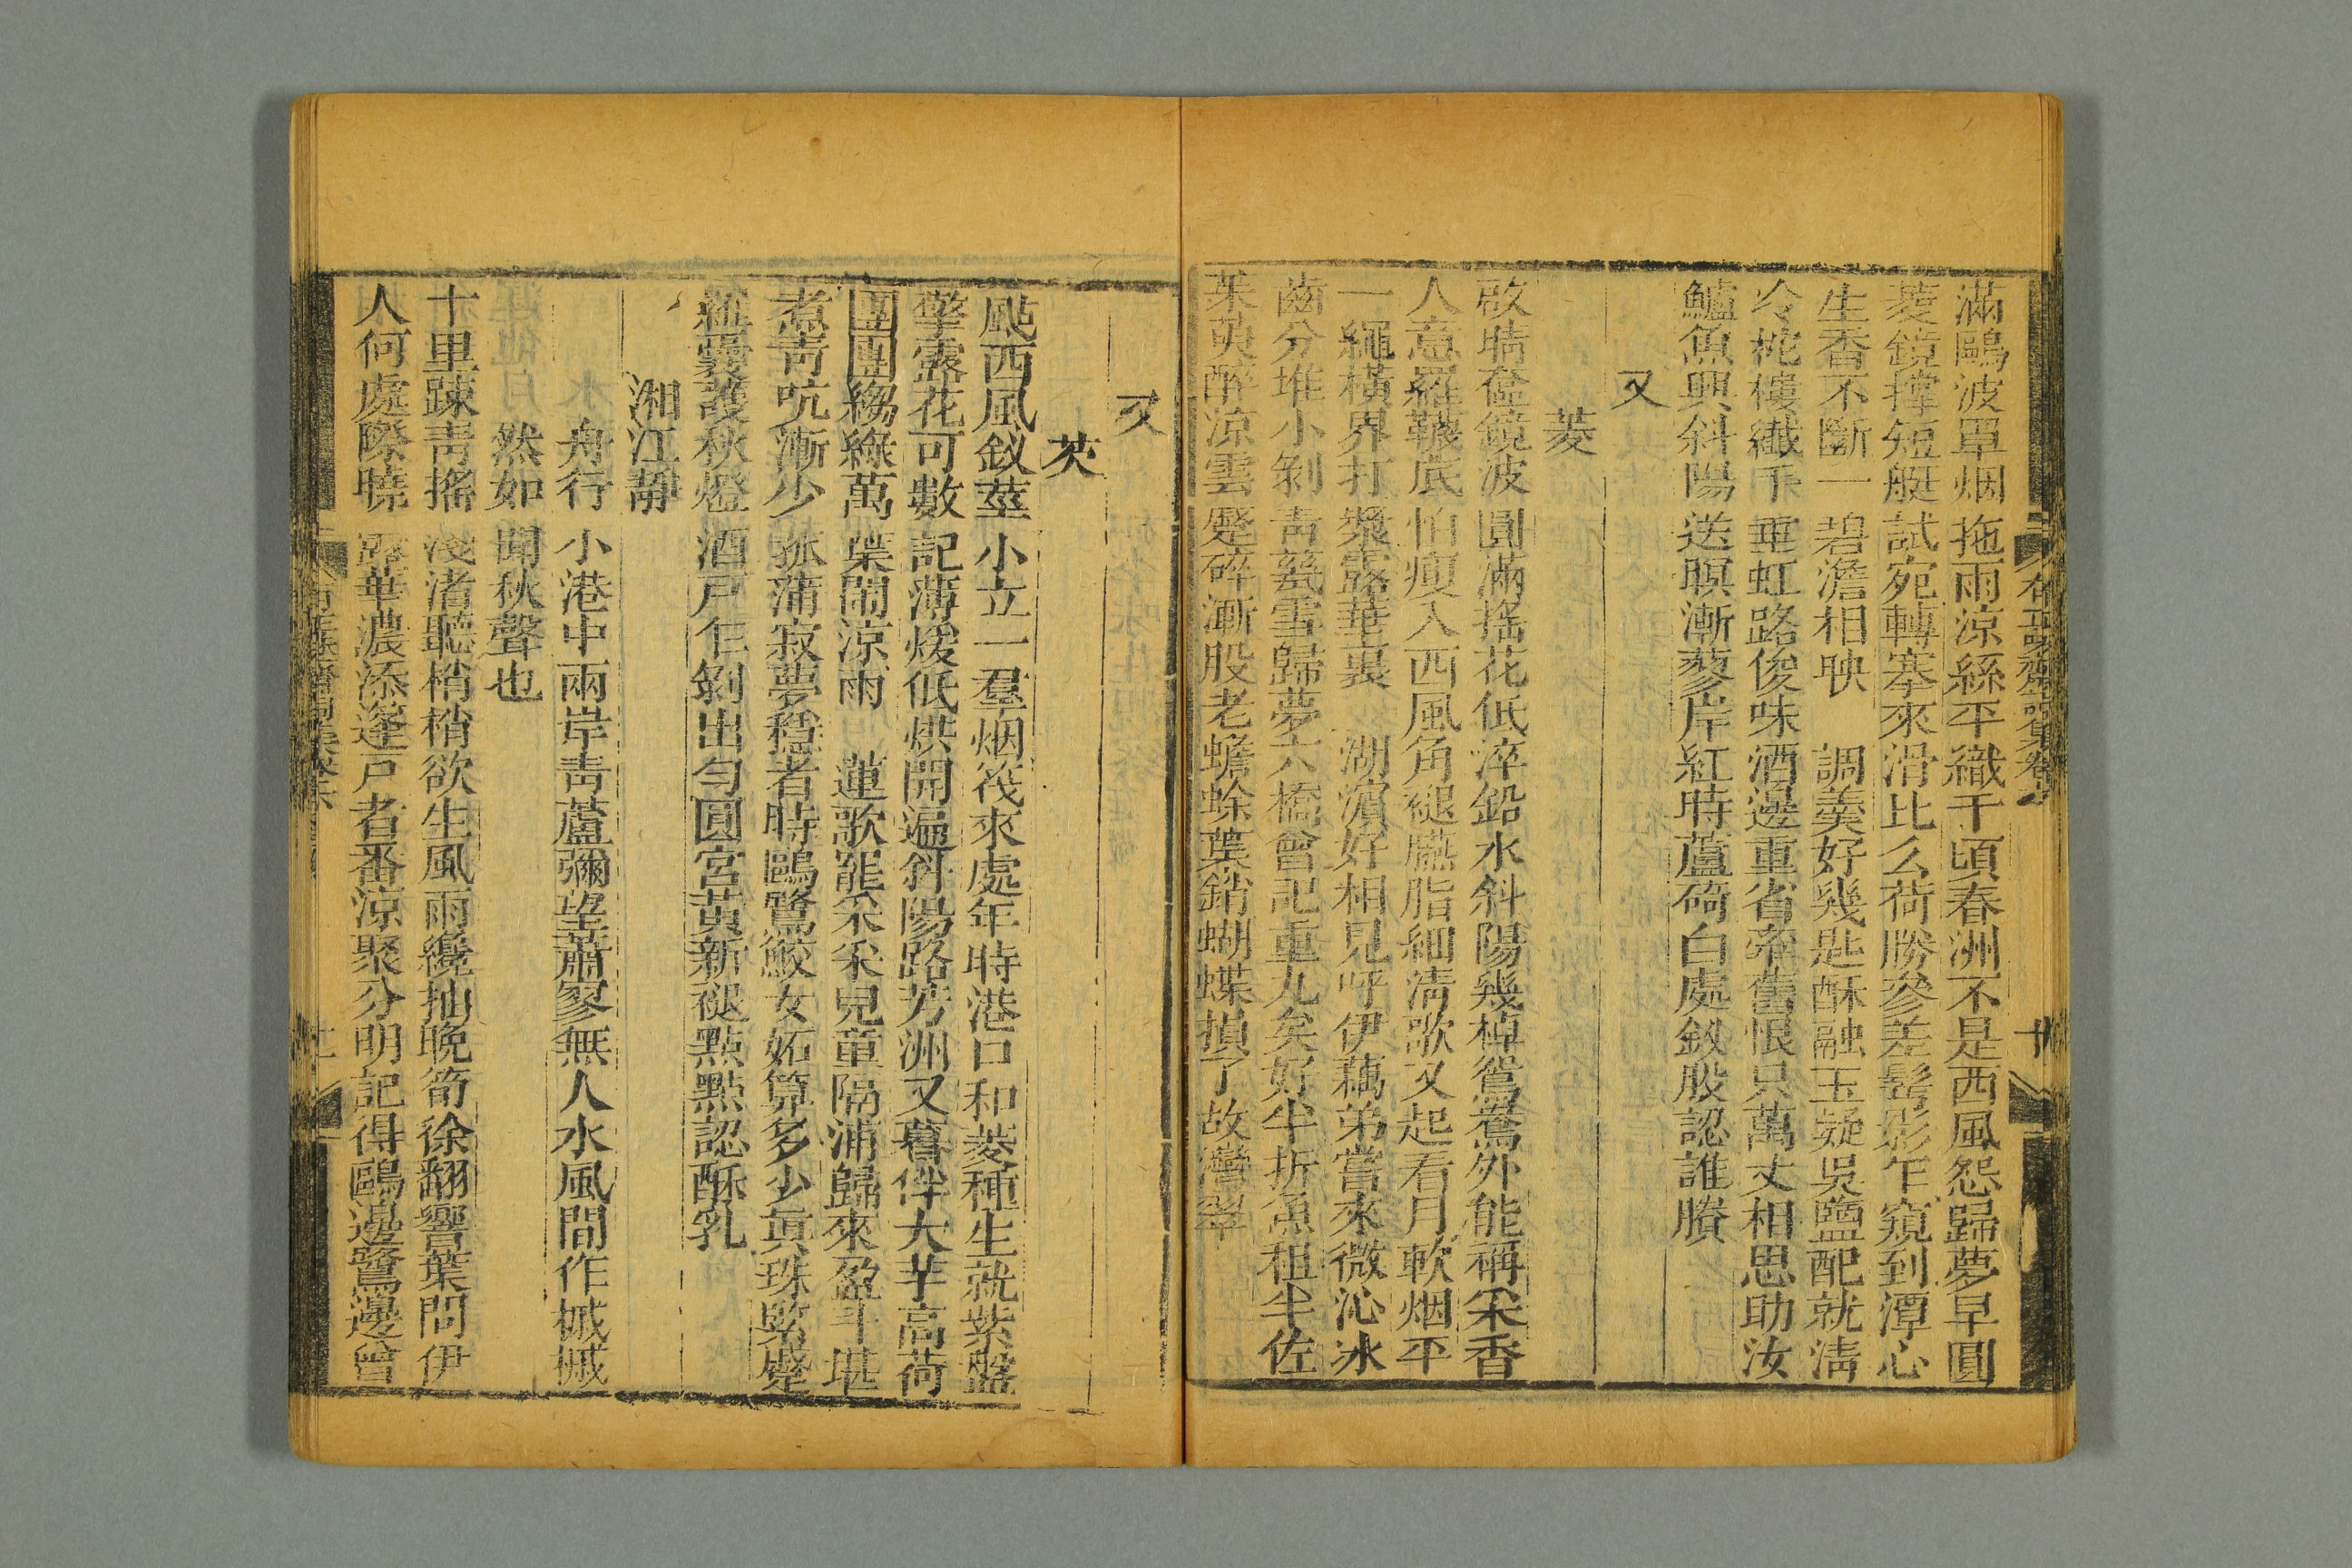 滿鷗波罩烟拖雨涼絲平織千頃春洲不是西風怨歸夢早圓
菱鏡撑短艇試宛轉搴來滑比么荷勝參差髻影乍窺到潭心
生香不斷一碧澹相映　調羹好幾匙酥融玉疑吳鹽配就淸
冷椗樓纎手垂虹路俊味酒邊重省牽舊恨只萬丈相思助汝
鱸魚興斜陽送暝漸蓼岸紅時蘆碕白處釵股認誰賸
又
菱
啟晴奩鏡波圓滿搖花低淬鉛水斜陽幾棹鴛鴦外能稱采香
人意羅韈底怕瘦入西風角褪臙脂細淸歌又起看月軟烟平
一繩橫界打槳露華裏　湖濵好相見呼伊藕弟當來微沁冰
齒分堆小剝靑甆雪歸夢六橋曾記重九矣好半折漁租半佐
茱萸醉涼雲壓碎漸股老蟾蜍葉銷蝴蝶損了故灣翠
又
芡
颭西風釵莖小立一羣烟筏來處年時港口和菱種生就紫盤
擎露花可數記薄煖低烘開遍斜陽路芳洲又暮伴大芋高荷
團團縐綠萬葉鬧涼雨　蓮歌罷采采兒童隔浦歸來盈斗堪
煮靑吭漸少菰蒲寂夢穩者時鷗鷺鮫女妬算多少眞珠緊蹙
羅囊護秋燈酒戸乍剝出勻圓宮黃新褪點點認酥乳
湘江靜
舟行小港中兩岸靑蘆彌望蕭寥無人水風間作槭槭
然如聞秋聲也
十里踈靑搖淺渚聽梢梢欲生風雨纔抽晩筍徐翻響葉問伊
人何處際曉露華濃添篷戸者番涼聚分明記得鷗邊鷺邊曾